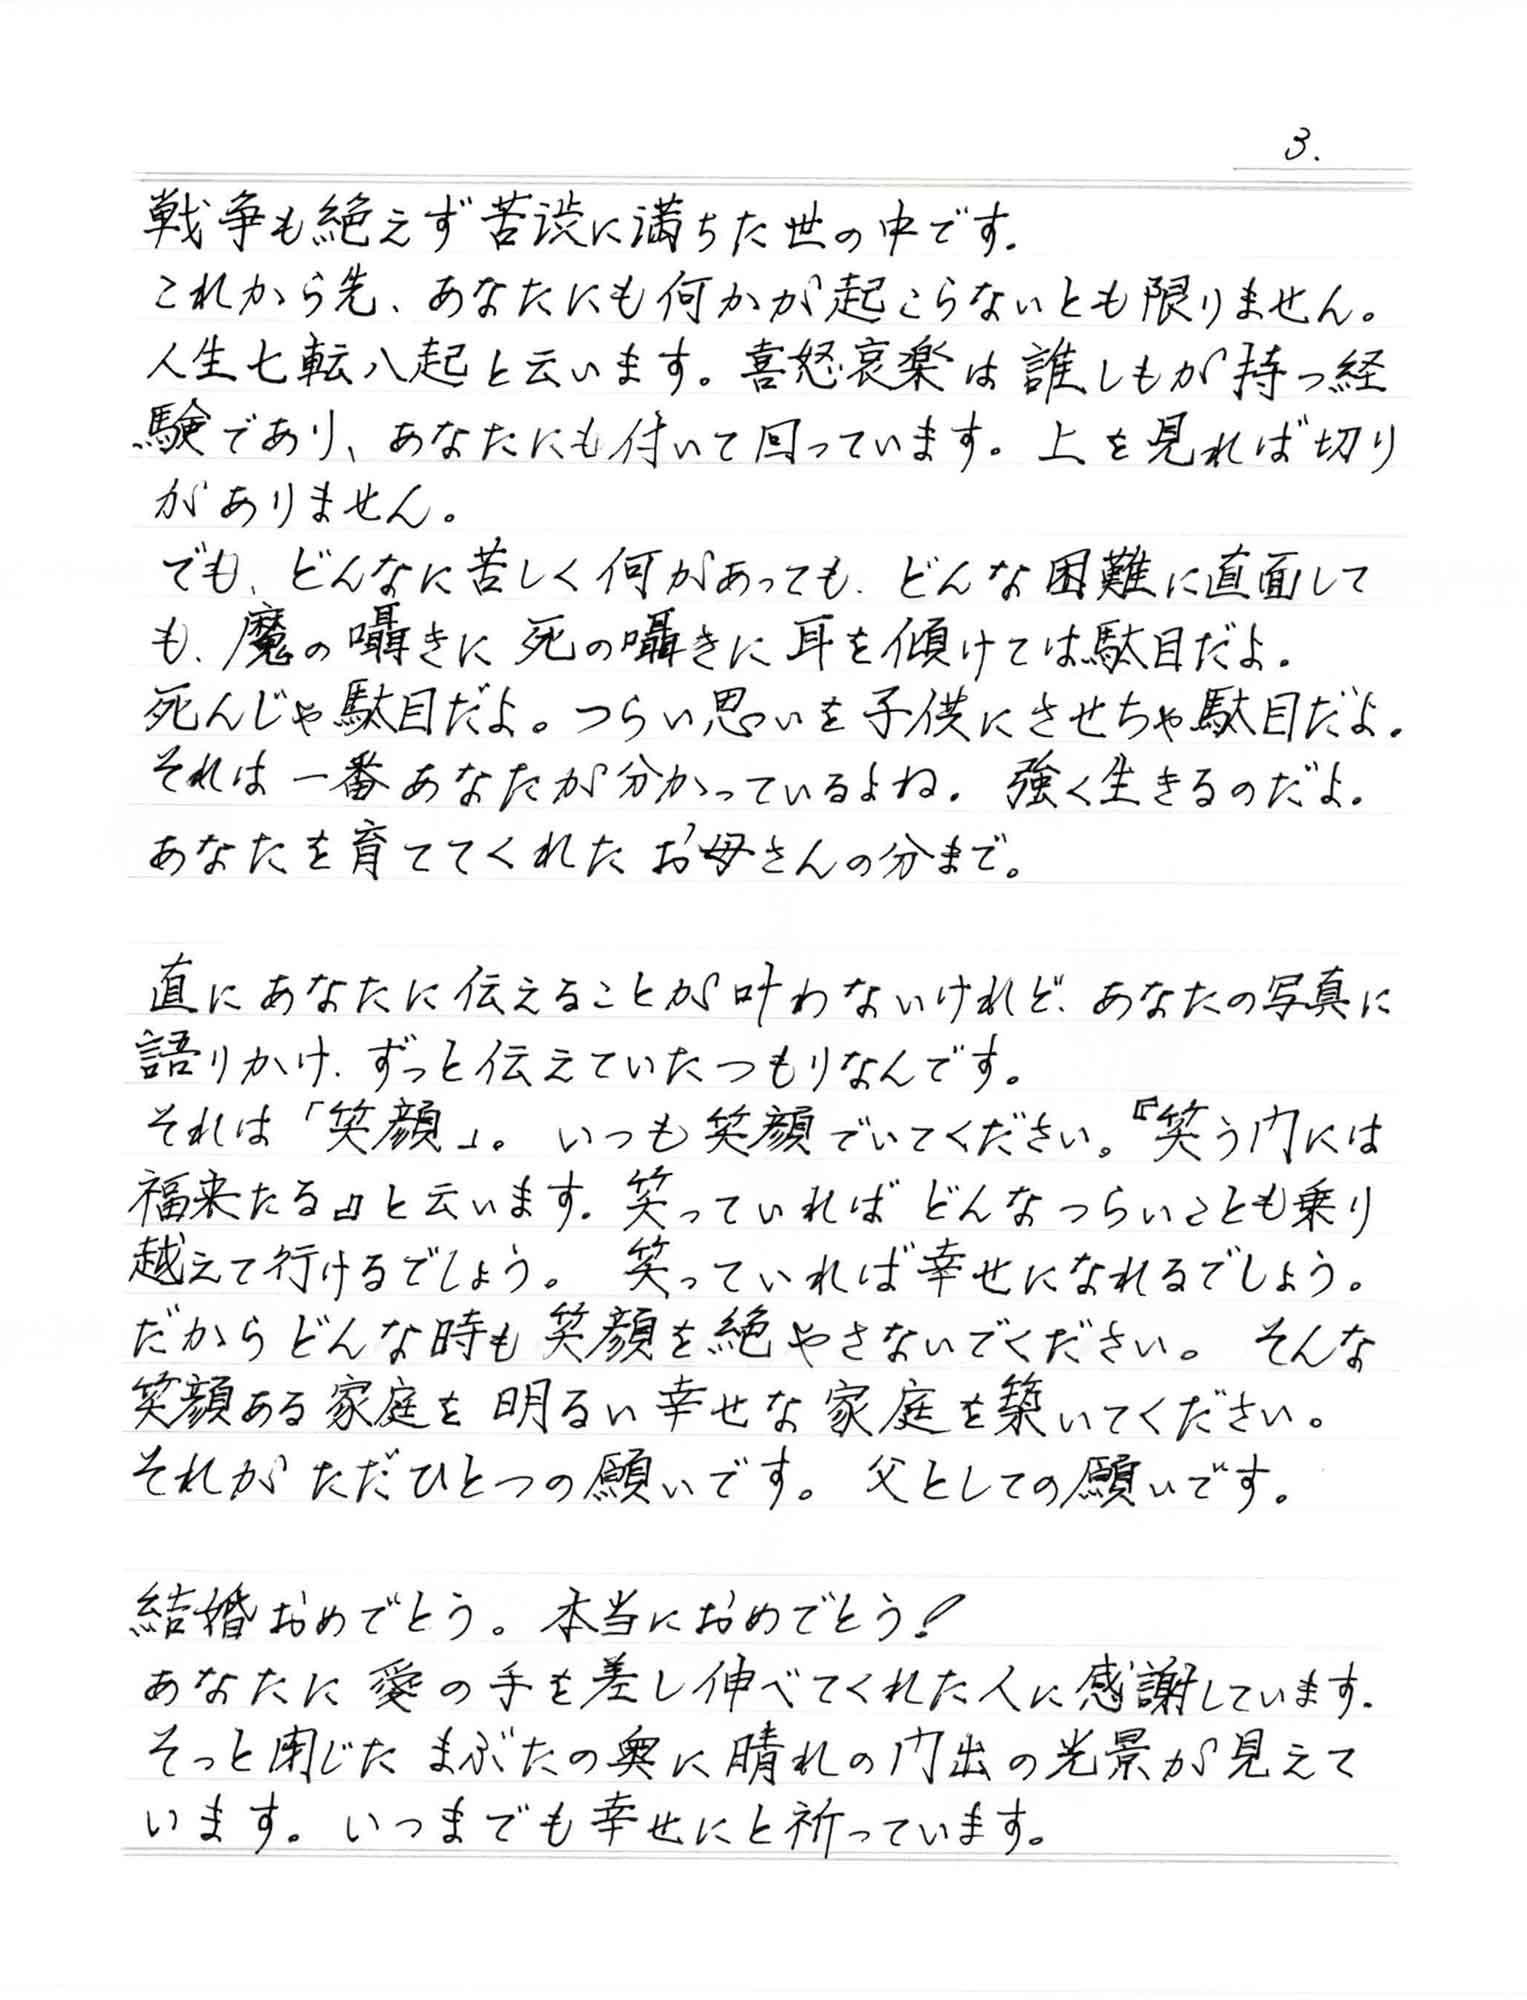 3.
戦争も絶えず苦渋に満ちた世の中です.
これから先、あなたにも何かが起こらないとも限りません。
人生七転八起と云います。喜怒哀楽は誰しもが持つ経
験であり、あなたにも付いて回っています。上を見れば切り
がありません。
でも、どんなに苦しく何があっても、どんな困難に直面して
も、魔の囁きに死の囁きに耳を傾けては駄目だよ.
死んじゃ駄目だよ。つらい思いを子供にさせちゃ駄目だよ.
それは一番あなたが分かっているよね. 強く生きるのだよ.
あなたを育ててくれたお母さんの分まで。
直にあなたに伝えることが叶わないけれど、あなたの写真に
語りかけ、ずっと伝えていたつもりなんです。
それは「笑顔」。いつも笑顔でいてください。『笑う門には
福来たる』と云います. 笑っていればどんなつらいことも乗り
越えて行けるでしょう。 笑っていれば幸せになれるでしょう。
だからどんな時も笑顔を絶やさないでください。 そんな
笑顔ある家庭を明るい幸せな家庭を築いてください。
それがただひとつの願いです。父としての願いです。
結婚おめでとう。本当におめでとう!
あなたに愛の手を差し伸べてくれた人に感謝しています.
そっと閉じたまぶたの奥に晴れの門出の光景が見えて
います。いつまでも幸せにと祈っています。